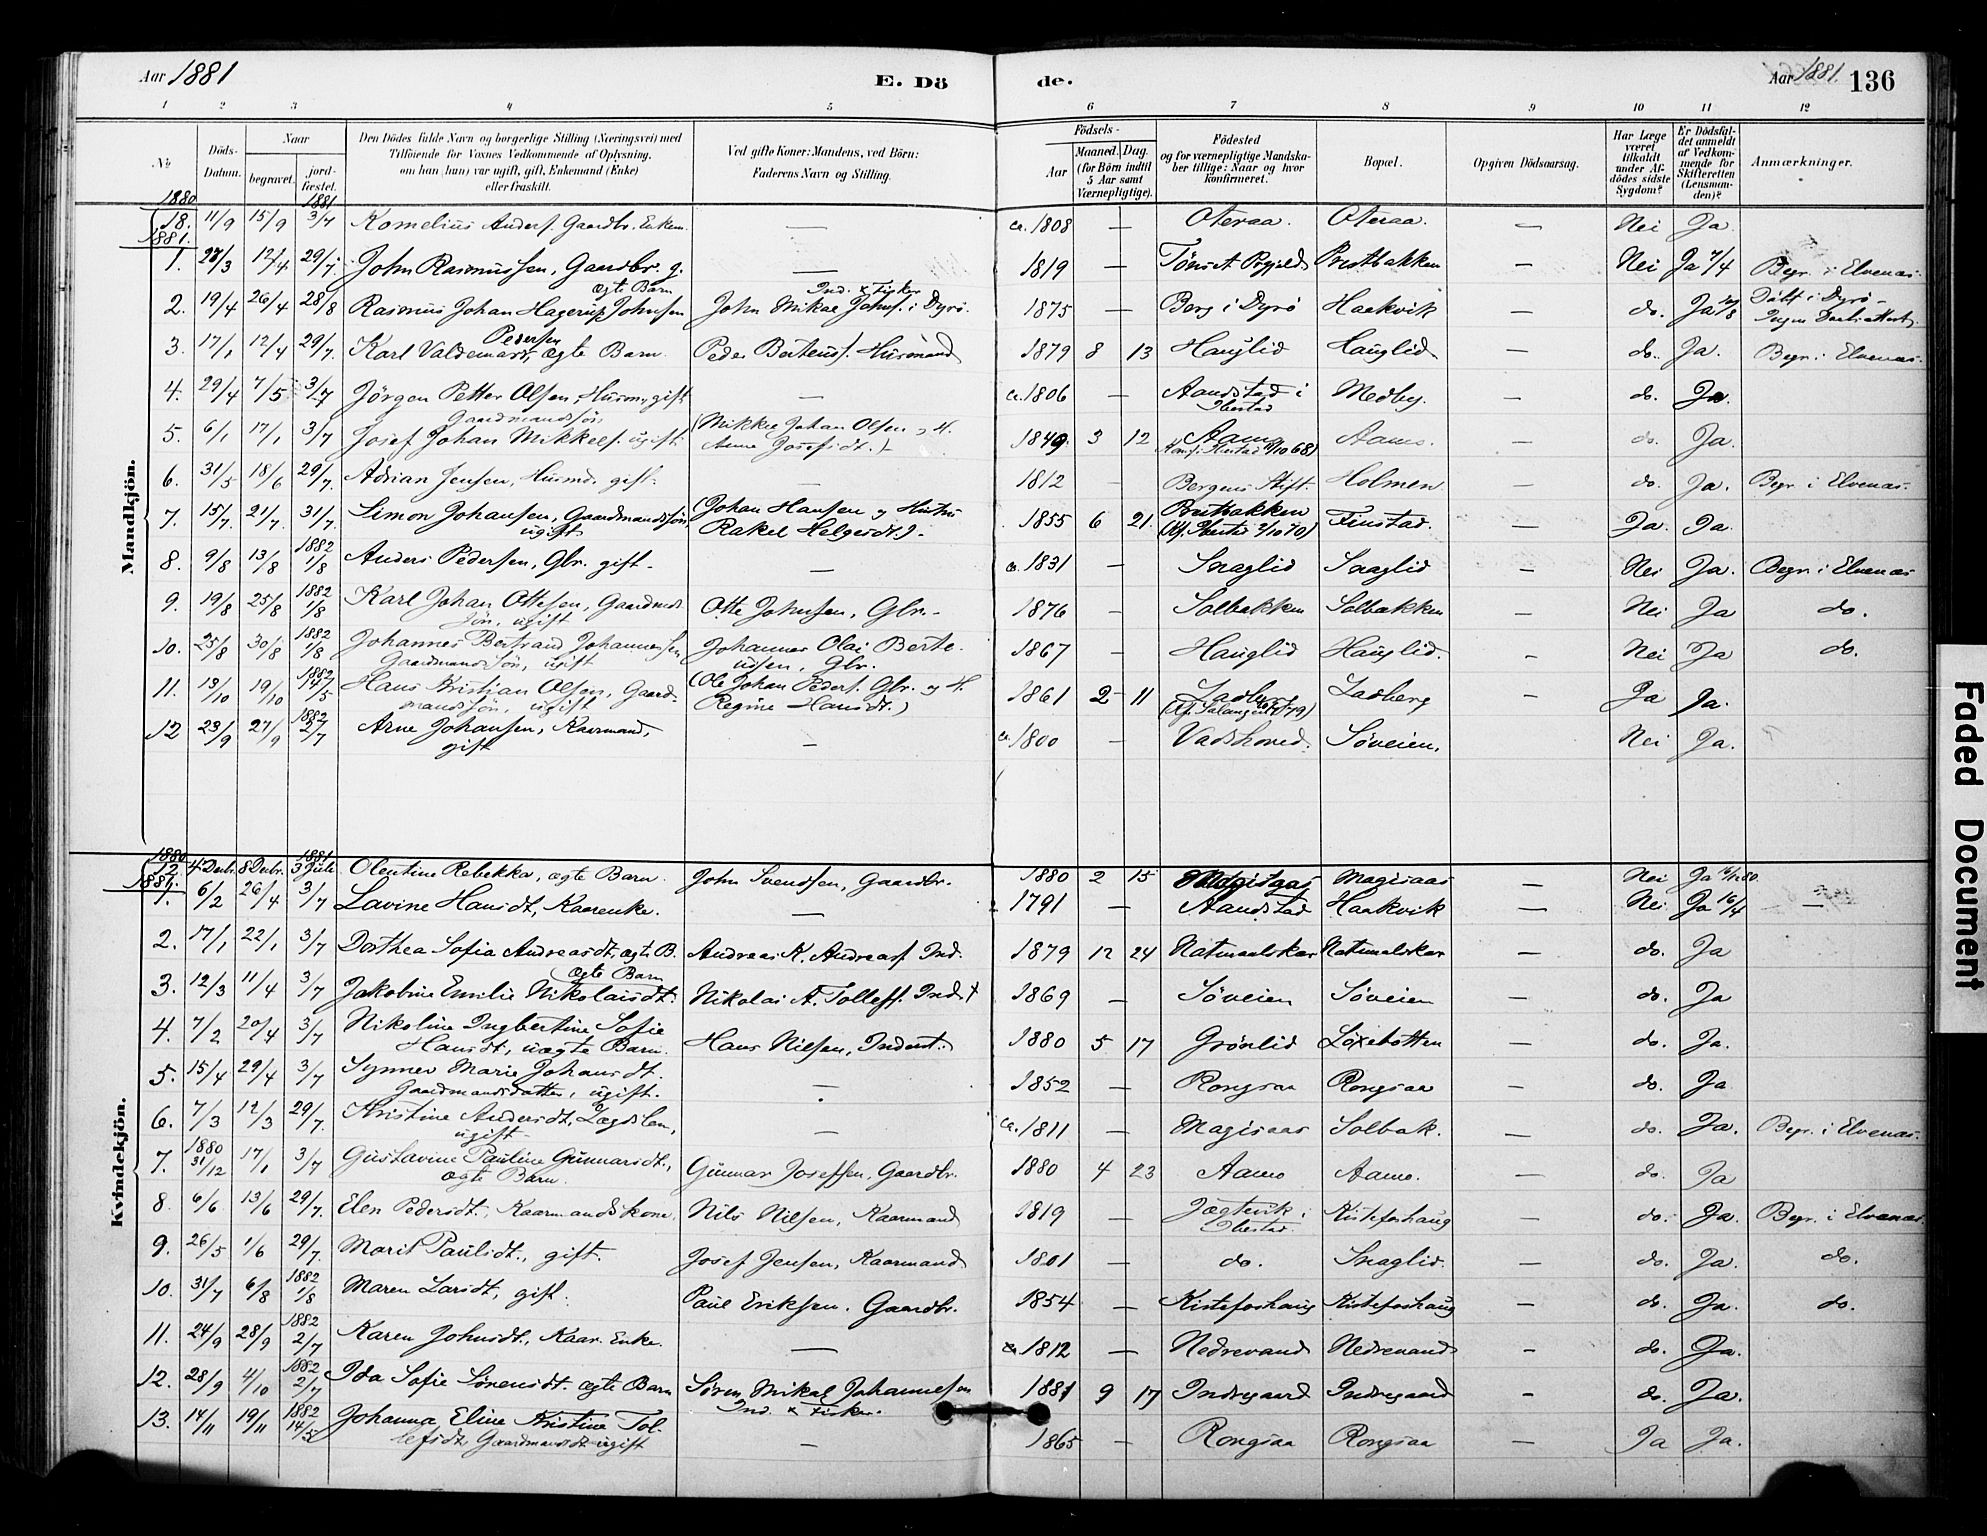 Aar 1881 E. Dö de. Aar 1881. 136
1 2 3 4 5 6 7 8 9 10 11 12
No
Döds-Datum.
Naar
begravet.
jordfæstet.
Den Dödes fulde Navn og borgerlige Stilling (Næringsvei) med
Tilföiende for Voxnes Vedkommende af Oplysning,
om han (hun) var ugift, gift, Enkemand (Enke)
eller fraskilt.
Ved gifte Koner: Mandens, ved Börn:
Faderens Navn og Stilling.
Födsels-
Aar
Maaned. Dag.
(for Börn indtil
5 Aar samt
Værnepligtige).
Födested
og for værnepligtige Mandskaber
tillige: Naar og hvor
konfirmeret.
Bopæl.
Opgiven Dödsaarsag.
Har Læge
været
tilkaldt
under Afdödes
sidste
Sygdom?
Er Dödsfaldet
anmeldt
af Vedkommende
for
Skifteretten
(Lensmanden)?
Anmærkninger.
Mandkjön.
1880 1881
18. 11/9 15/9 3/7 Kornelius Anders. Gaardbr. Enkem. — ca. 1808 — Oteraa. Oteraa. — Nei Ja.
1881.
1. 28/3 12/4 29/7. John Rasmussen, Gaardbr. g. — 1819 — Prestbakken — Nei Ja 7/4 Begr. i Elvenes.
ægte Barn Ind. & Fisker
2. 19/4 26/4 28/8 Rasmus Johan Hagerup Johnsen John Mikal Johns. i Dyrö. 1875 — Berg i Dyrö Haakvik — do. Ja Dåbt i Dyrö -
Pedersen
3. 17/1 12/4 29/7. Karl Valdemar, ægte Barn. Peder Berteuss. Husmand 1879 8 13 Hauglid Hauglid — do. Ja. Begr. i Elvenes.
4. 29/4 7/5 3/7 Jörgen Petter Olsen, Husm., gift — ca. 1806 — Aandstad i Ibestad Medby. — do. Ja.
Gaardmandssön
5. 6/1 17/1 3/7 Josef Johan Mikkels. ugift. (Mikkel Johan Olsen og H.
Anne Josefsdt.) 1849. 3 12 Aamo Aamo. — do. Ja.
6. 31/5 18/6 29/7. Adrian Jensen, Husmd. gift. — 1812 Bergens Stift. Holmen — do. Ja. Begr. i Elvenes.
7. 15/7. 21/7. 31/7. Simon Johansen, Gaardmandssön
ugift (Johan Hansen og Hustru
Rakel Helgesdt.). 1855 6 21. Prestbakken Finstad. — Ja. Ja.
8. 9/8 13/8 1882 1/8 Anders Pedersen, Gbr. gift. — ca. 1831 — Snaglid Snaglid — Nei Ja. Begr. i Elvenes
9. 19/8 25/8 1882 1/8 Karl Johan Ottesen, Gaardmds.
sön, ugift Otte Johnsen, Gbr. 1876 — Solbakken Solbakken — Nei Ja do.
10. 25/8 30/8 1882 1/8 Johannes Bertrand Johannessen
Gaardmandssön, ugift Johannes Olai Berteussen,
Gbr. 1867 — Hauglid Hauglid. — Nei Ja do.
11. 13/10 19/10 1882 14/5 Hans Kristian Olsen, Gaardmandssön,
ugift (Ole Johan Peders. Gbr. og H.
Regine Hansdt.) 1861 2 11 Ladberg Ladberg — Ja Ja.
12 23/9 27/9 1882 2/7 Arne Johansen, Kaarmand,
gift — ca. 1800 — Vadshoved. Söveien. Nei Ja.
Kvindekjön.
1880 1881
12 4 Decbr. 8 Decbr. 3 Juli Olentine Rebekka, ægte Barn. John Svendsen, Gaardbr. 1880 2 15 Magisaas Magisaas — Nei Ja
1881.
1. 6/2 26/4 3/7 Lavine Hansdt, Kaarenke. — 1791 — Aandstad Haakvik — Nei Ja 16/4 —
2. 17/1 22/1 3/7 Dorthea Sofia Andreasdt, ægte B. Andreas K. Andreass. Ind. 1879 12 24 Natmaalskar Natmaalskar — do. Ja
ægte Barn
3. 12/3 11/4 3/7 Jakobine Emilie Nikolaisdt. Nikolai A. Tollefs. Ind. 1869 — Söveien Söveien — do. Ja
4. 7/2 20/4 3/7 Nikoline Ingbertine Sofie
Hansdt, uægte Barn. Hans Nilsen, Inderst. 1880 5 17 Grönlid Löxebotten — do. Ja.
5. 15/4 29/4 3/7 Synnev Marie Johansdt.
Gaardmandsdatter, ugift. — 1852 — Rongsaa Rongsaa — do. Ja
6. 7/3 12/3 29/7. Kristine Andersdt, Lægdslem,
ugift — ca. 1811 — Magisaas Solbak. — do. Ja. Begr. i Elvenes.
7. 1880 31/12 17/1 3/7 Gustavine Pauline Gunnarsdt.,
ægte Barn. Gunnar Josefsen, Gaardbr. 1880 4 23 Aamo Aamo. — do. Ja
8. 6/6 13/6 29/7. Elen Pedersdt., Kaarmandskone. Nils Nilsen, Kaarmand 1819 Jægtevik i
Ibestad Kisteforshaug — do. Ja. Begr. i Elvenes.
9. 26/5 1/6 29/7. Marit Paulsdt., gift. Josef Jensen, Kaarmand 1801 — do. Snaglid. — do. Ja. do.
10. 31/7 6/8 1882 1/8 Maren Larsdt, gift. Paul Eriksen. Gaardbr. 1854 — Kisteforshaug Kisteforshaug — do. Ja. do.
11. 24/9 28/9 1882 2/7 Karen Johnsdt., Kaar. Enke. — ca. 1812 — Nedrevand Nedrevand — do. Ja.
12. 28/9 4/10 1882 2/7 Ida Sofie Sörensdt. ægte Barn Sören Mikal Johannesen
Ind. & Fisker. 1881 9 17 Indregaard Indregaard — do. Ja.
13. 14/11 19/11 1882 14/5 Johanna Eline Kristine Tollefsdt,
Gaardmandsdt ugift — 1865 — Rongsaa Rongsaa — Ja Ja.
Faded Document